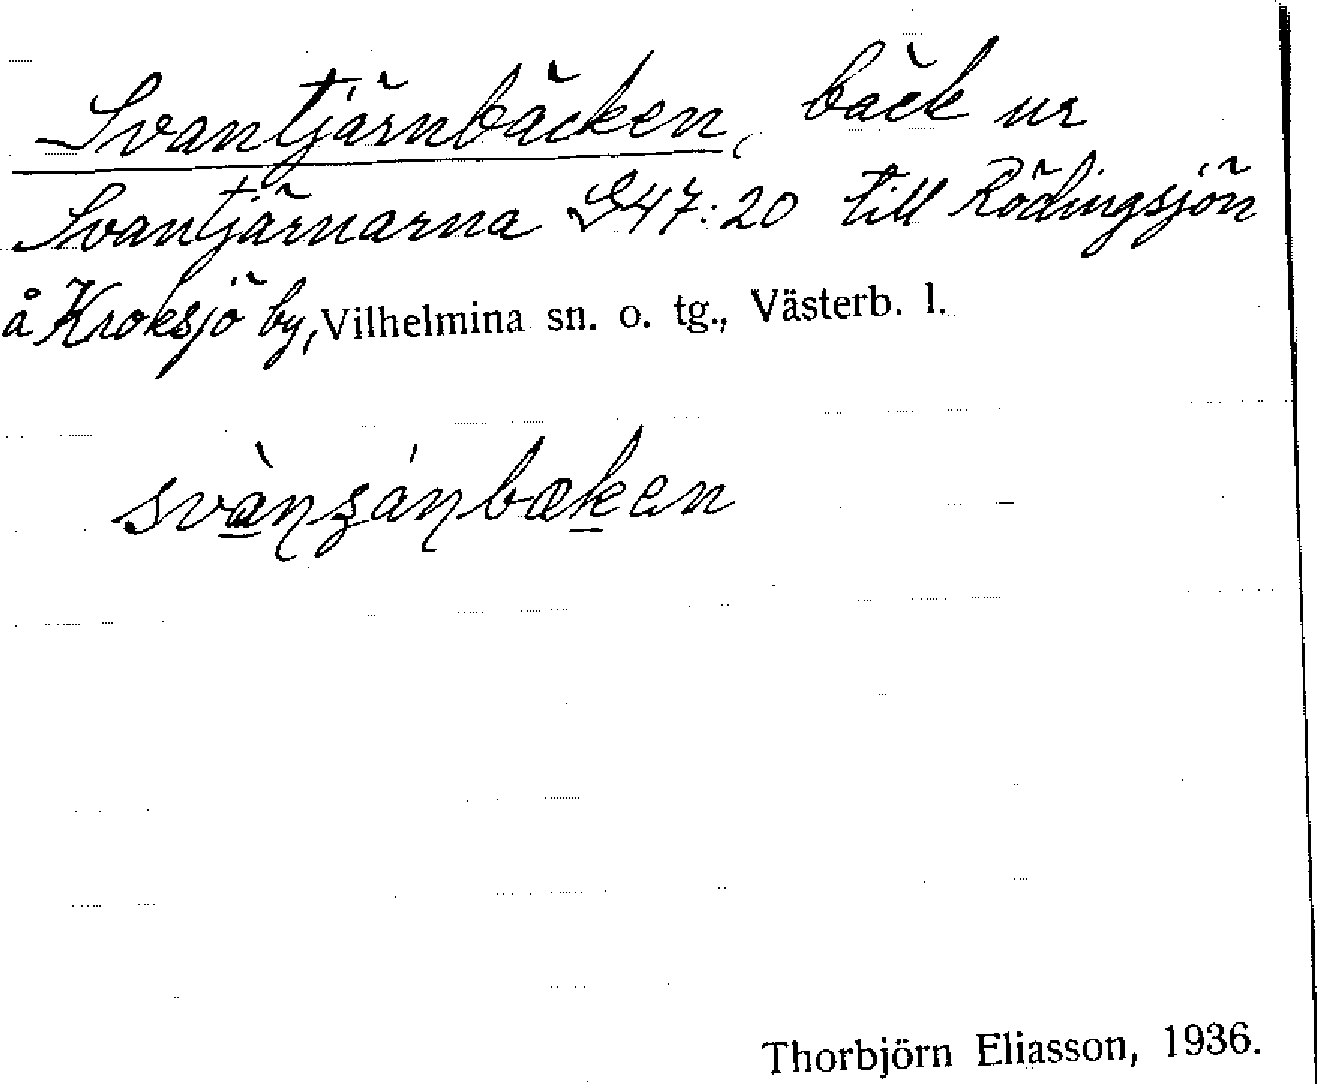 Svantjärnbäcken, bäck ur
Svantjärnarna S47:20 till Rödingsjön
å Kroksjö by, Vilhelmina sn. o. tg., Västerb. l.
Thorbjörn Eliasson, 1936.